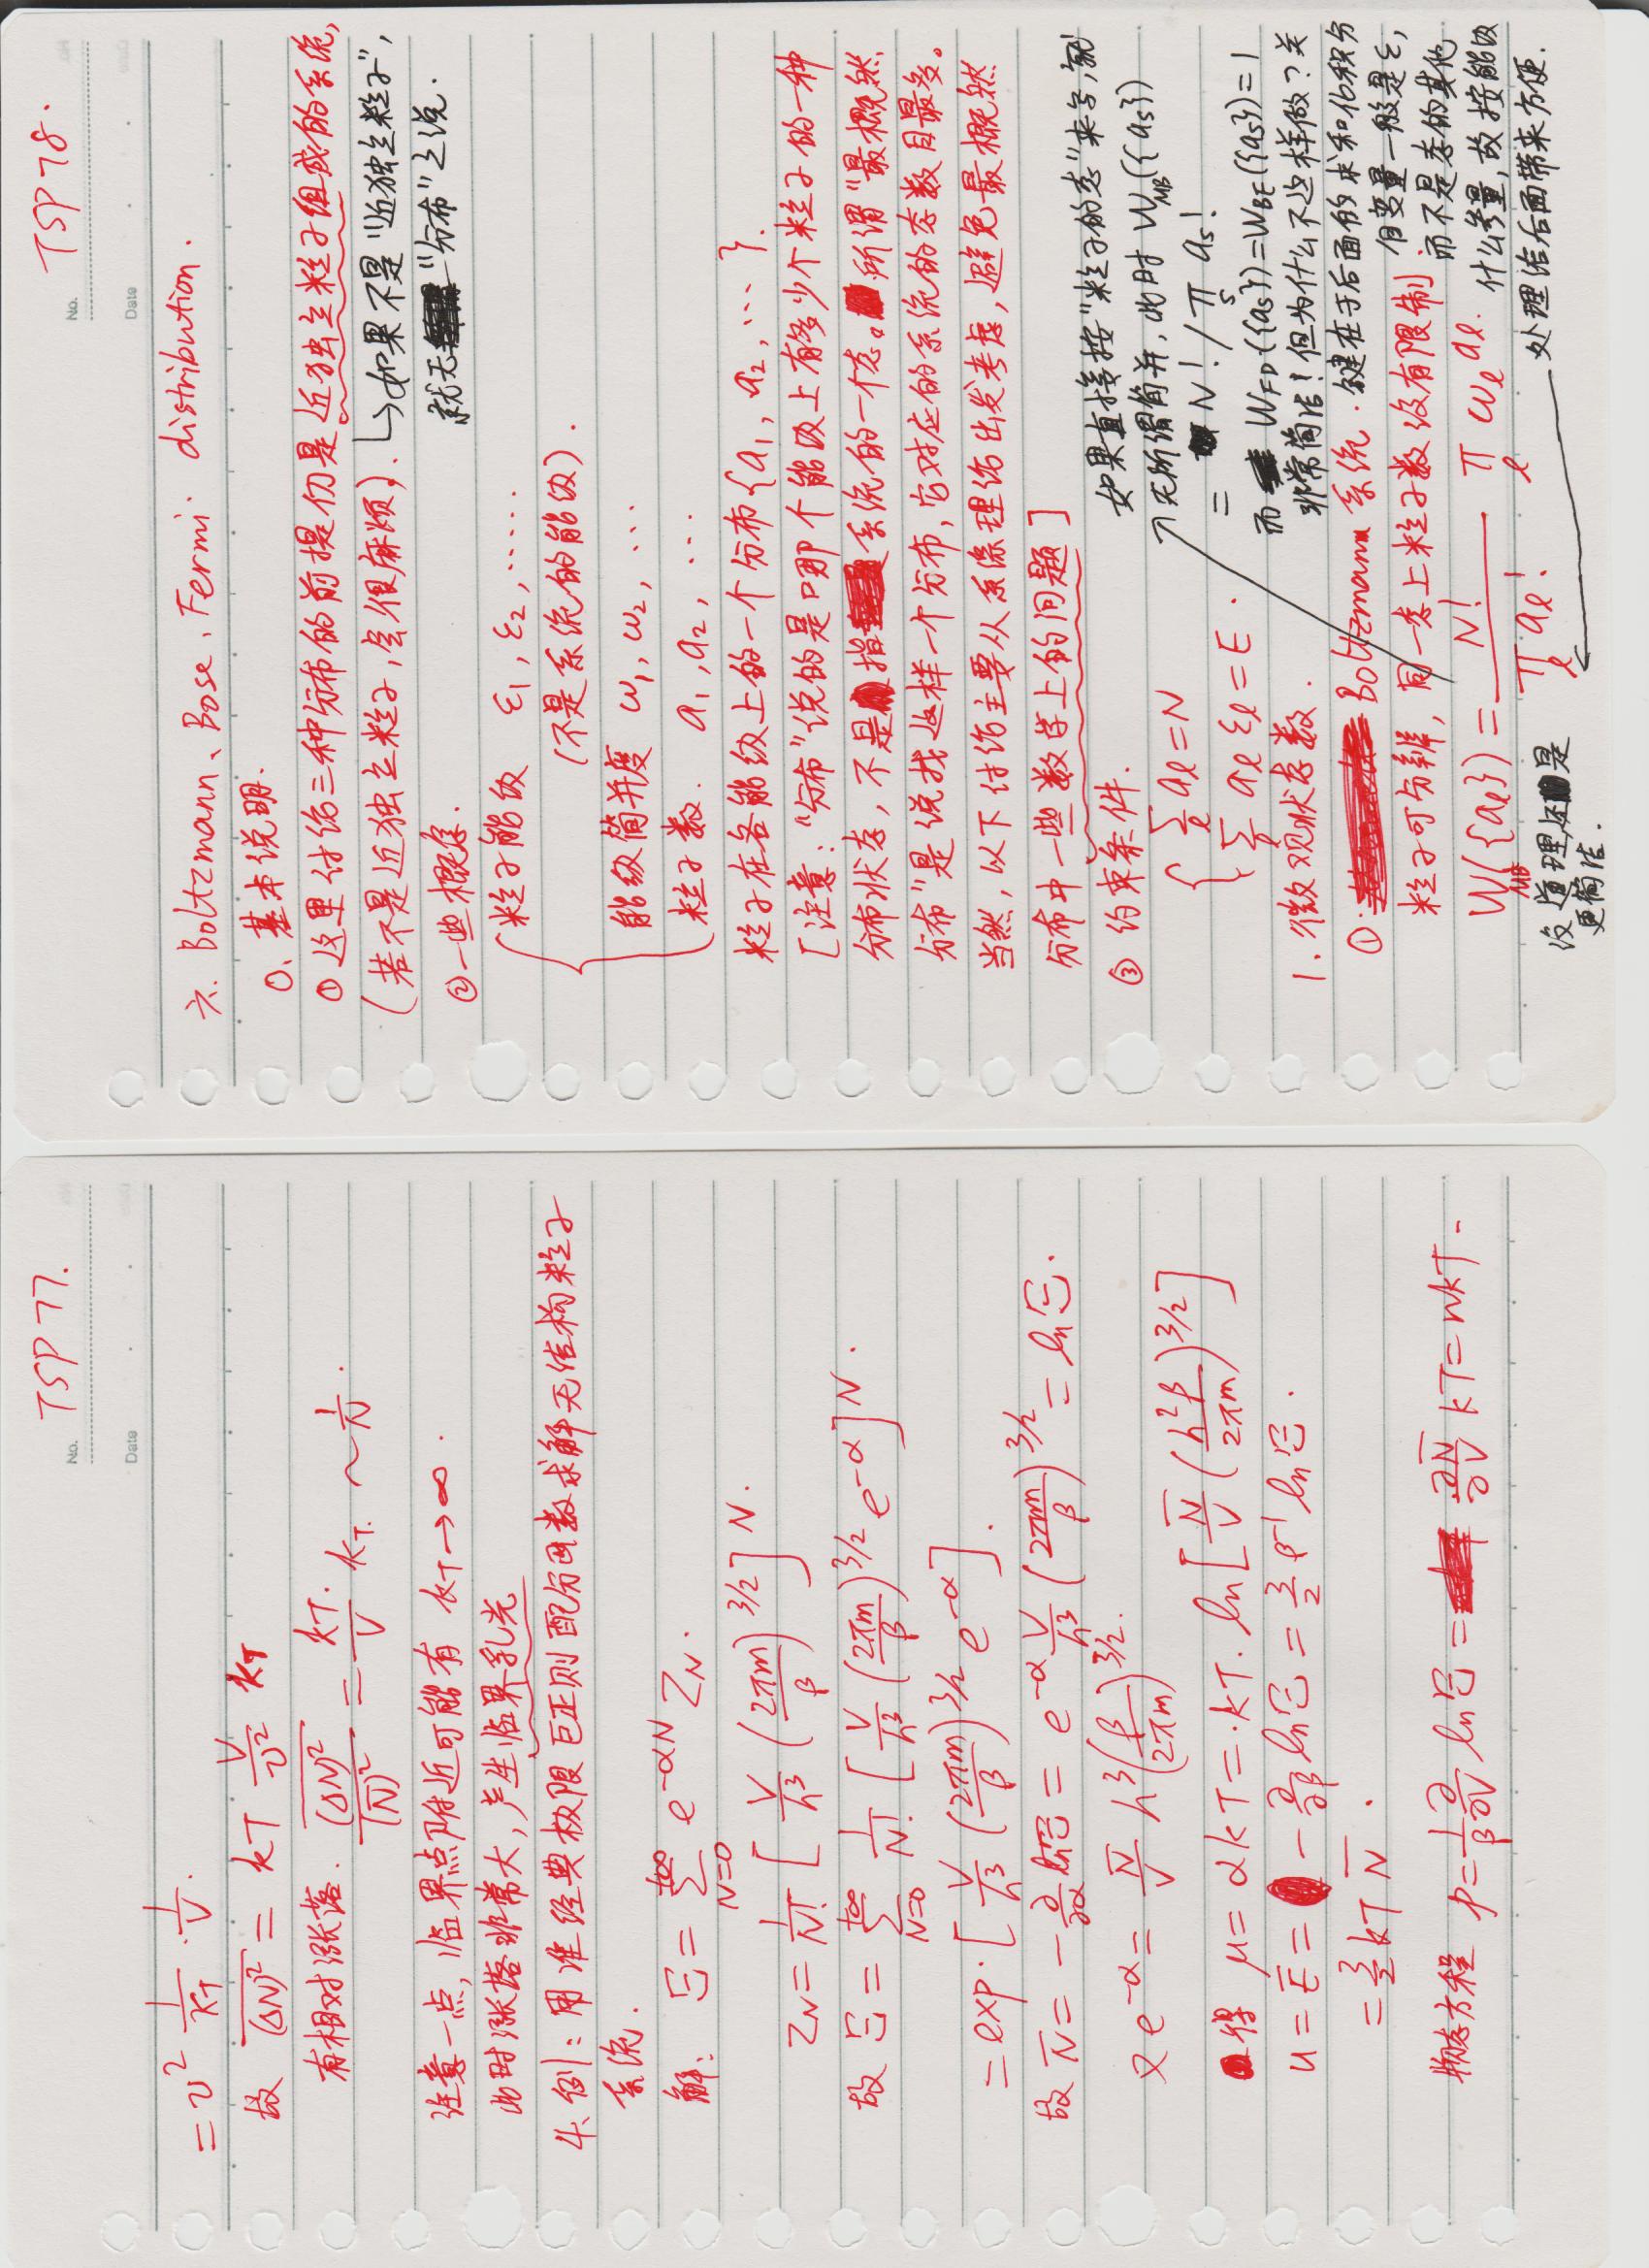 No. TSP 77.
Date
= v² 1/κ_T · 1/V.
故 \overline{(ΔN)²} = kT V/v² κ_T
有相对涨落. \overline{(ΔN)²}/(\overline{N})² = kT/V κ_T. ~ 1/N.
注意一点, 临界点附近可能有 κ_T→∞.
此时涨落非常大, 产生临界乳光
4. 例: 用准经典极限巨正则配分函数求解无结构粒子
系统.
解: Ξ = Σ_{N=0}^{+∞} e^{-αN} Z_N.
Z_N = 1/N! [V/h³ (2πm/β)^{3/2}]^N.
故 Ξ = Σ_{N=0}^{+∞} 1/N! [V/h³ (2πm/β)^{3/2} e^{-α}]^N.
= exp·[V/h³ (2πm/β)^{3/2} e^{-α}].
故 \overline{N} = -∂/∂α lnΞ = e^{-α} V/h³ (2πm/β)^{3/2} = lnΞ.
又 e^{-α} = \overline{N}/V h³ (β/2πm)^{3/2}.
得 μ = αkT = ·kT. ln[\overline{N}/V (h²β/2πm)^{3/2}]
u = \overline{E} = -∂/∂β lnΞ = 3/2 β^{-1} lnΞ.
= 3/2 kT \overline{N}.
物态方程 p = 1/β ∂/∂V lnΞ = ∂\overline{N}/∂V kT = nkT.
No. TSP 78.
Date
六. Boltzmann、Bose、Fermi· distribution.
0. 基本说明.
① 这里讨论三种分布的前提仍是近独立粒子组成的系统,
(若不是近独立粒子, 会很麻烦). ↳如果不是“近独立粒子”,
就无“分布”之说.
② 一些概念.
粒子能级 ε₁, ε₂, ······
(不是系统的能级).
能级简并度 ω₁, ω₂, ···
粒子数. a₁, a₂, ···
粒子在各能级上的一个分布 {a₁, a₂, ···}.
[注意: “分布”说的是哪个能级上有多少个粒子的一种
分布状态, 不是指系统的一个态。所谓“最概然
分布”是说找这样一个分布, 它对应的系统的态数目最多。
当然, 以下讨论主要从系综理论出发考虑, 避免最概然
分布中一些数学上的问题]
③ 约束条件.
Σ_l a_l = N
Σ_l a_l ε_l = E.
如果直接按“粒子的态”来写, 就
无所谓简并, 此时 W_MB({a_s})
= N! / Π_s a_s!
而 W_FD({a_s}) = W_BE({a_s}) = 1
非常简洁! 但为什么不这样做? 关
键在于后面的求和化积分
但变量一般是ε,
而不是态的其他
什么参量, 故按能级
处理给后面带来方便.
1. 微观状态数.
① Boltzmann 系统.
粒子可分辨, 同一态上粒子数没有限制
W_MB({a_l}) = N!/Π_l a_l! Π_l ω_l^{a_l}.
没道理, 还是
更简洁.